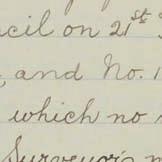 cil on 21st
and No. 1
which no
Surveyor's